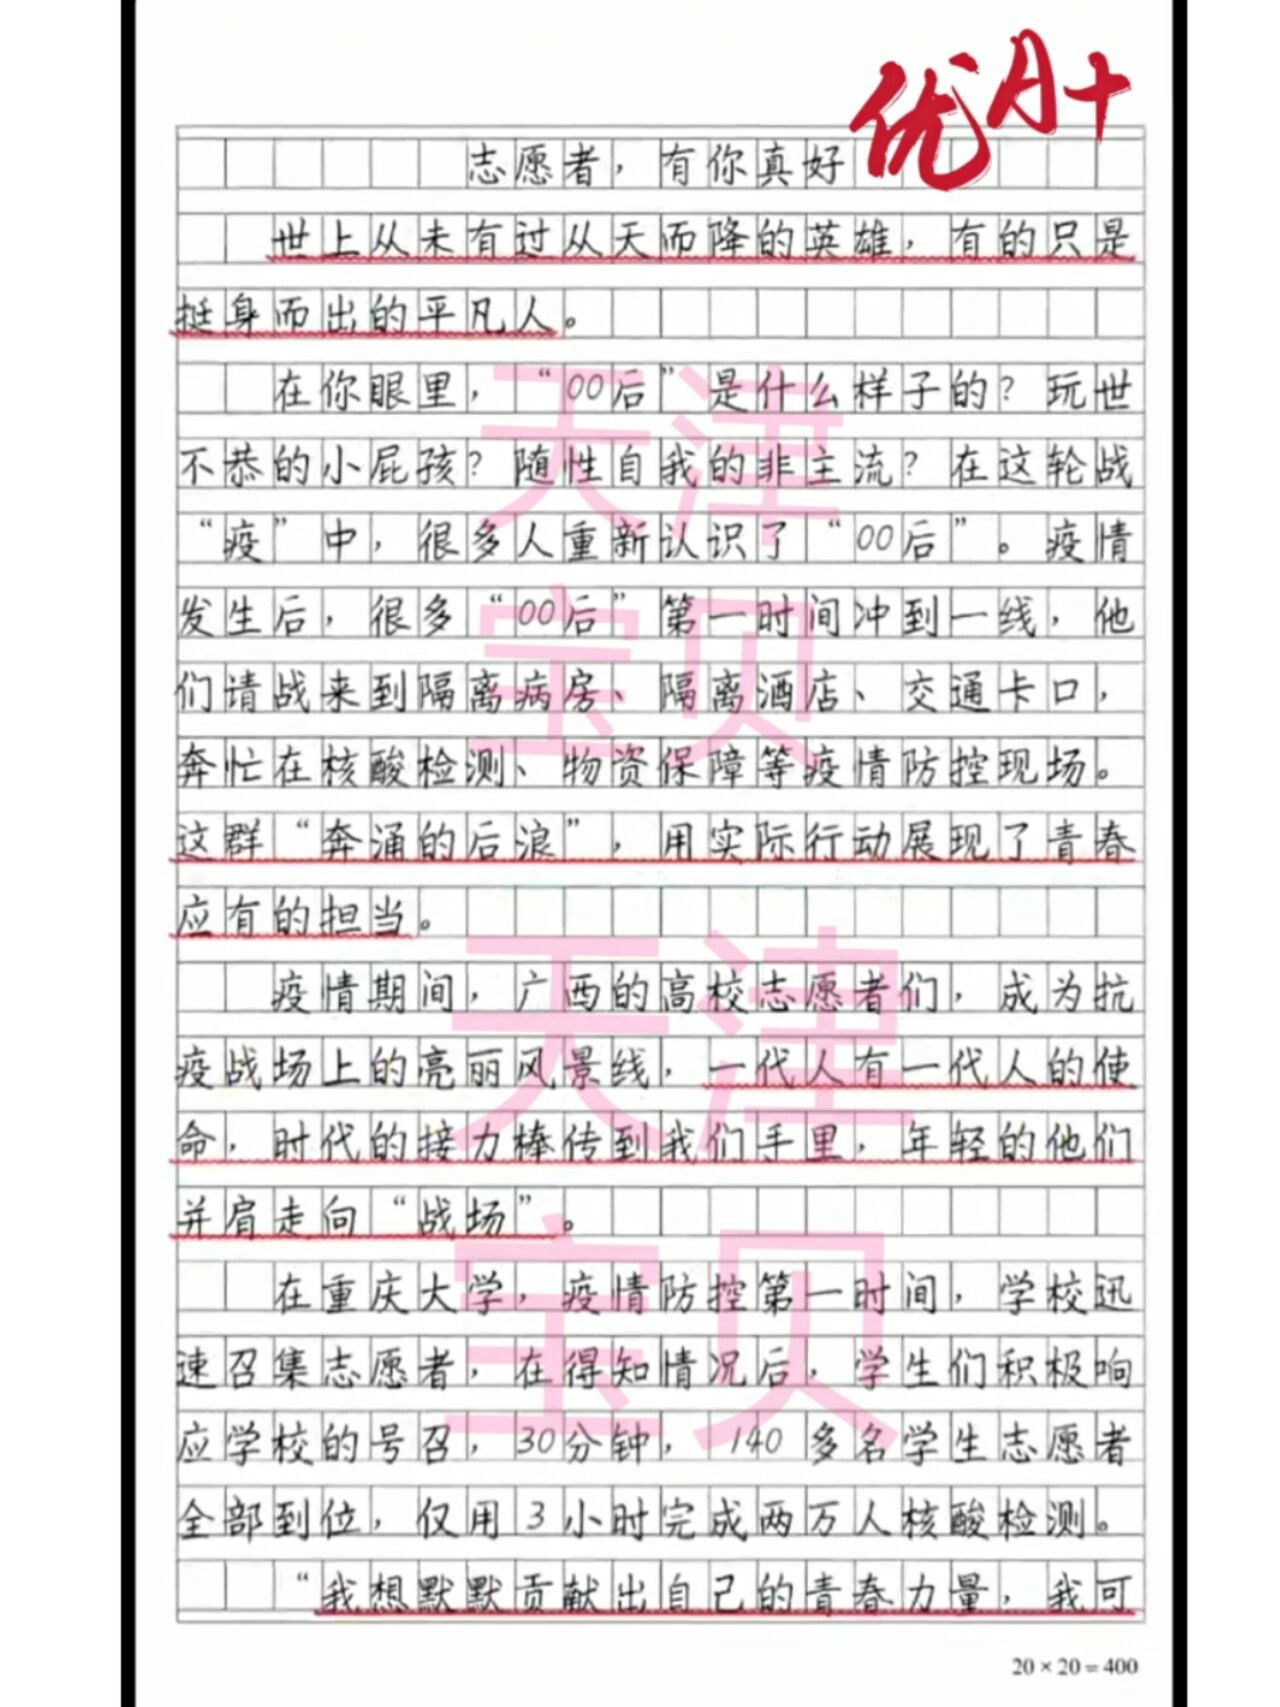 优A+
志愿者，有你真好
世上从未有过从天而降的英雄，有的只是
挺身而出的平凡人。
在你眼里，“00后”是什么样子的？玩世
不恭的小屁孩？随性自我的非主流？在这轮战
“疫”中，很多人重新认识了“00后”。疫情
发生后，很多“00后”第一时间冲到一线，他
们请战来到隔离病房、隔离酒店、交通卡口，
奔忙在核酸检测、物资保障等疫情防控现场。
这群“奔涌的后浪”，用实际行动展现了青春
应有的担当。
疫情期间，广西的高校志愿者们，成为抗
疫战场上的亮丽风景线，一代人有一代人的使
命，时代的接力棒传到我们手里，年轻的他们
并肩走向“战场”。
在重庆大学，疫情防控第一时间，学校迅
速召集志愿者，在得知情况后，学生们积极响
应学校的号召，30分钟，140多名学生志愿者
全部到位，仅用3小时完成两万人核酸检测。
“我想默默贡献出自己的青春力量，我可
20×20=400
天津
宝贝
天津
宝贝